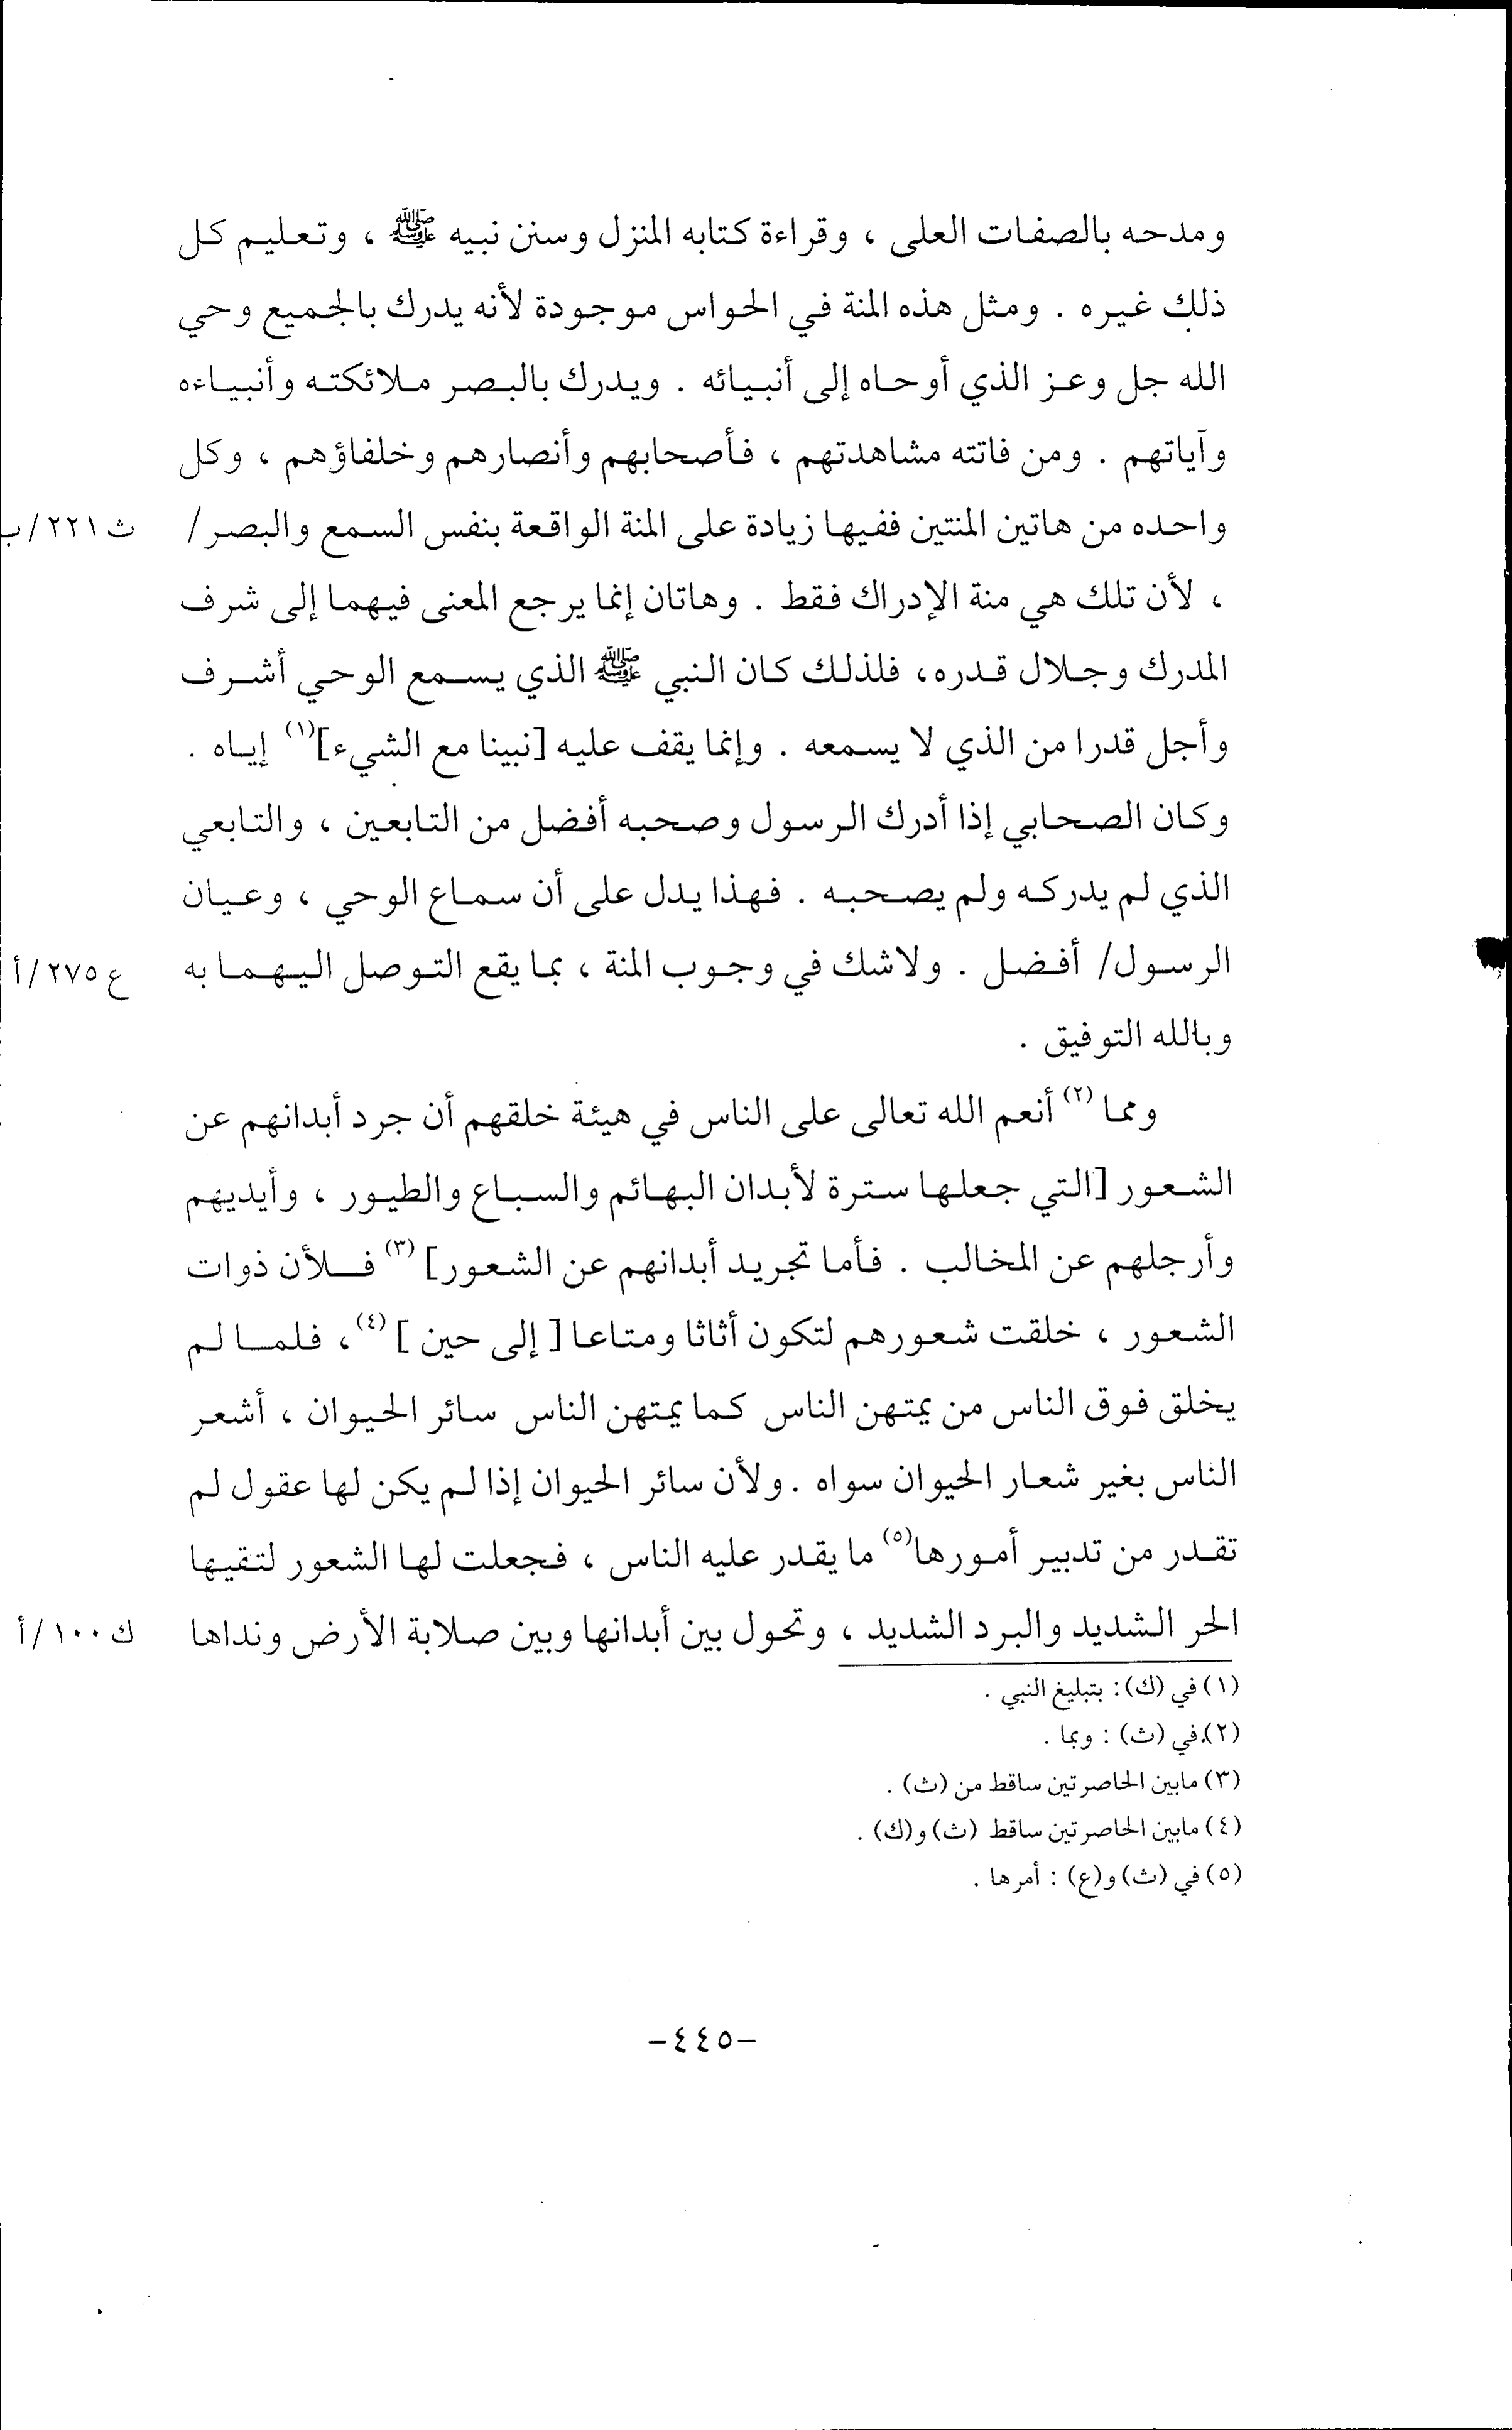 ومدحه بالصفات العلى ، وقراءة كتابه المنزل وسنن نبيه ﷺ ، وتعليم كل
ذلك غيره . ومثل هذه المنة في الحواس موجودة لأنه يدرك بالجميع وحي
الله جل وعز الذي أوحاه إلى أنبيائه . ويدرك بالبصر ملائكته وأنبياءه
وآياتهم . ومن فاتته مشاهدتهم ، فأصحابهم وأنصارهم وخلفاؤهم ، وكل
واحده من هاتين المنتين ففيها زيادة على المنة الواقعة بنفس السمع والبصر/ ث ٢٢١/ب
، لأن تلك هي منة الإدراك فقط . وهاتان إنما يرجع المعنى فيهما إلى شرف
المدرك وجلال قدره، فلذلك كان النبي ﷺ الذي يسمع الوحي أشرف
وأجل قدرا من الذي لا يسمعه . وإنما يقف عليه [نبينا مع الشيء](١) إياه .
وكان الصحابي إذا أدرك الرسول وصحبه أفضل من التابعين ، والتابعي
الذي لم يدركه ولم يصحبه . فهذا يدل على أن سماع الوحي ، وعيان
الرسول/ أفضل . ولاشك في وجوب المنة ، بما يقع التوصل اليهما به ع ٢٧٥/أ
وبالله التوفيق .
ومما (٢) أنعم الله تعالى على الناس في هيئة خلقهم أن جرد أبدانهم عن
الشعور [التي جعلها سترة لأبدان البهائم والسباع والطيور ، وأيديهم
وأرجلهم عن المخالب . فأما تجريد أبدانهم عن الشعور] (٣) فلأن ذوات
الشعور ، خلقت شعورهم لتكون أثاثا ومتاعا [ إلى حين ] (٤)، فلما لم
يخلق فوق الناس من يمتهن الناس كما يمتهن الناس سائر الحيوان ، أشعر
الناس بغير شعار الحيوان سواه . ولأن سائر الحيوان إذا لم يكن لها عقول لم
تقدر من تدبير أمورها(٥) ما يقدر عليه الناس ، فجعلت لها الشعور لتقيها
الحر الشديد والبرد الشديد ، وتحول بين أبدانها وبين صلابة الأرض ونداها ك ١٠٠/أ
(١) في (ك): بتبليغ النبي .
(٢) في (ث) : وبما .
(٣) مابين الحاصرتين ساقط من (ث) .
(٤) مابين الحاصرتين ساقط (ث) و(ك) .
(٥) في (ث) و(ع) : أمرها .
-٤٤٥-